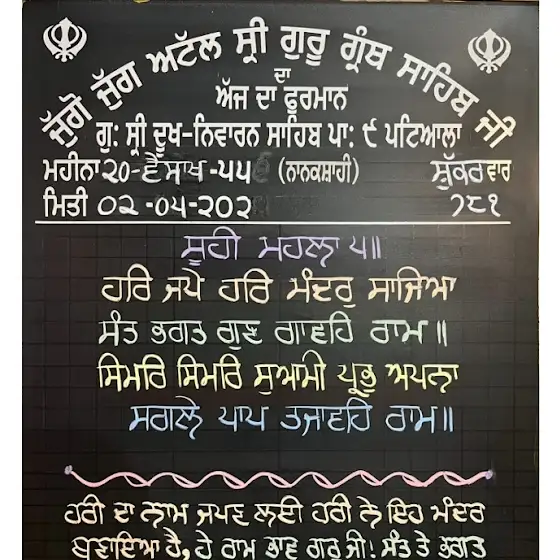 ਜੁੱਗੋ ਜੁੱਗ ਅਟੱਲ ਸ੍ਰੀ ਗੁਰੂ ਗ੍ਰੰਥ ਸਾਹਿਬ ਜੀ
ਦਾ
ਅੱਜ ਦਾ ਫੁਰਮਾਨ
ਗੁ: ਸ੍ਰੀ ਦੂਖ-ਨਿਵਾਰਨ ਸਾਹਿਬ ਪਾ: ੯ ਪਟਿਆਲਾ
ਮਹੀਨਾ ੨੦-ਵੈਸਾਖ-੫੫ (ਨਾਨਕਸ਼ਾਹੀ) ਸ਼ੁੱਕਰਵਾਰ
ਮਿਤੀ ੦੨-੦੫-੨੦੨ ੭੮੧
ਸੂਹੀ ਮਹਲਾ ੫॥
ਹਰਿ ਜਪੇ ਹਰਿ ਮੰਦਰੁ ਸਾਜਿਆ
ਸੰਤ ਭਗਤ ਗੁਣ ਗਾਵਹਿ ਰਾਮ॥
ਸਿਮਰਿ ਸਿਮਰਿ ਸੁਆਮੀ ਪ੍ਰਭੁ ਅਪਨਾ
ਸਗਲੇ ਪਾਪ ਤਜਾਵਹਿ ਰਾਮ॥
ਹਰੀ ਦਾ ਨਾਮ ਜਪਣ ਲਈ ਹਰੀ ਨੇ ਇਹ ਮੰਦਰ
ਬਣਾਇਆ ਹੈ, ਹੇ ਰਾਮ ਭਾਵ ਗੁਰੂ ਜੀ! ਸੰਤ ਤੇ ਭਗਤ